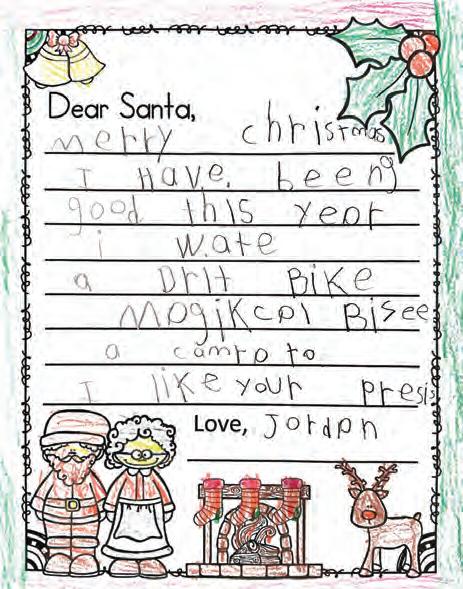 Dear Santa,
merry christmas
I Have. beeng
good this year
i wate
a Drit BiKE
MagiKcal Bisee
a camra to
I like your presis
Love, Jordan